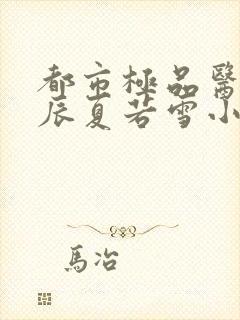 都市極品醫
辰夏若雪小
馬冶